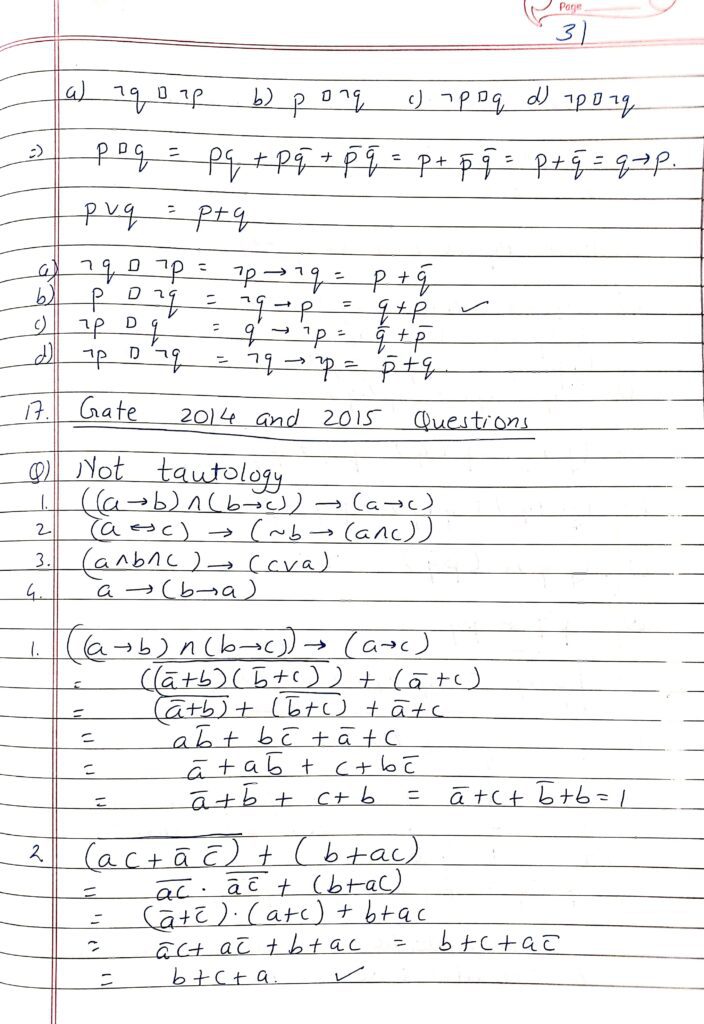 Page
31
a) ¬q □ ¬p b) p □ ¬q c) ¬p □ q d) ¬p □ ¬q
⇒ p □ q = pq + pq̄ + p̄ q̄ = p + p̄ q̄ = p + q̄ = q → p.
p ∨ q = p + q
a) ¬q □ ¬p = ¬p → ¬q = p + q̄
b) p □ ¬q = ¬q → p = q + p ✓
c) ¬p □ q = q → ¬p = q̄ + p̄
d) ¬p □ ¬q = ¬q → ¬p = p̄ + q.
17. Gate 2014 and 2015 Questions
Q) Not tautology
1. ((a → b) ∧ (b → c)) → (a → c)
2 (a ↔ c) → (~b → (a∧c))
3. (a∧b∧c) → (c∨a)
4. a → (b → a)
1. ((a → b) ∧ (b → c)) → (a → c)
= \overline{((ā + b)(b̄ + c))} + (ā + c)
= \overline{(ā + b)} + \overline{(b̄ + c)} + ā + c
= ab̄ + bc̄ + ā + c
= ā + ab̄ + c + bc̄
= ā + b̄ + c + b = ā + c + b̄ + b = 1
2 \overline{(ac + ā c̄)} + (b + ac)
= \overline{ac} . \overline{ā c̄} + (b + ac)
= (ā + c̄) . (a + c) + b + ac
= āc + ac̄ + b + ac = b + c + ac̄
= b + c + a. ✓